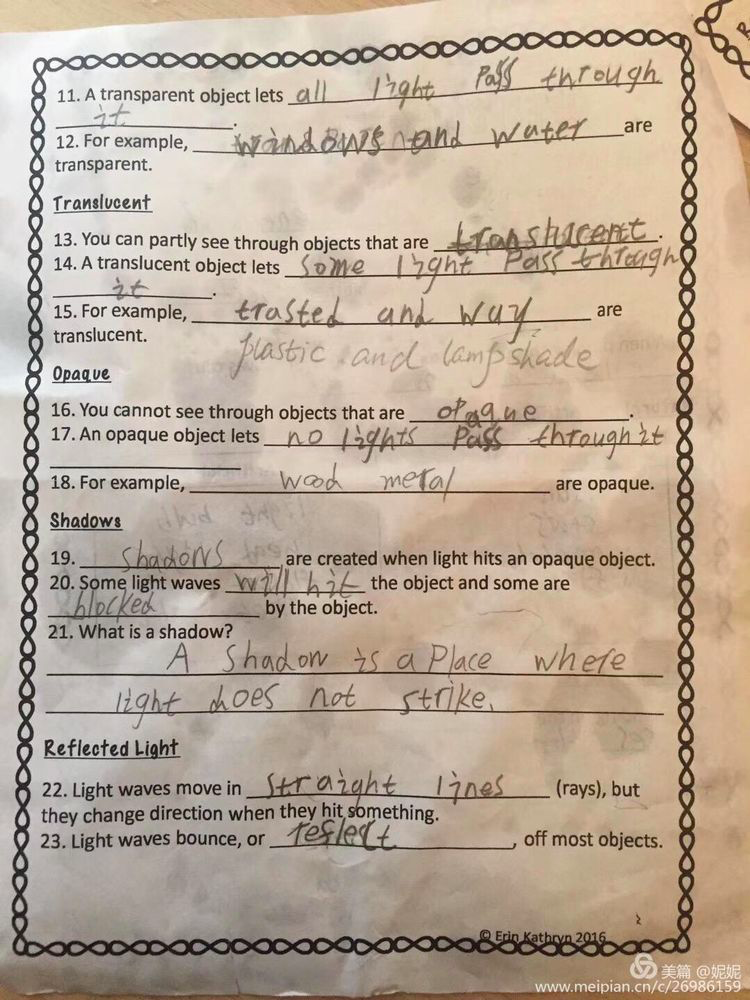 11. A transparent object lets all light Pass through
it.
12. For example, windows and water are
transparent.
Translucent
13. You can partly see through objects that are transhcent.
14. A translucent object lets some light Pass through
it.
15. For example, trasted and way are
translucent.
plastic and lampshade
Opaque
16. You cannot see through objects that are opaque.
17. An opaque object lets no lights Pass through it
18. For example, wood metal are opaque.
Shadows
19. shadows are created when light hits an opaque object.
20. Some light waves will hit the object and some are
blocked by the object.
21. What is a shadow?
A shadow is a Place where
light does not strike.
Reflected Light
22. Light waves move in straight lines (rays), but
they change direction when they hit something.
23. Light waves bounce, or reflect, off most objects.
© Erin Kathryn 2016
美篇 @妮妮
www.meipian.cn/c/26986159